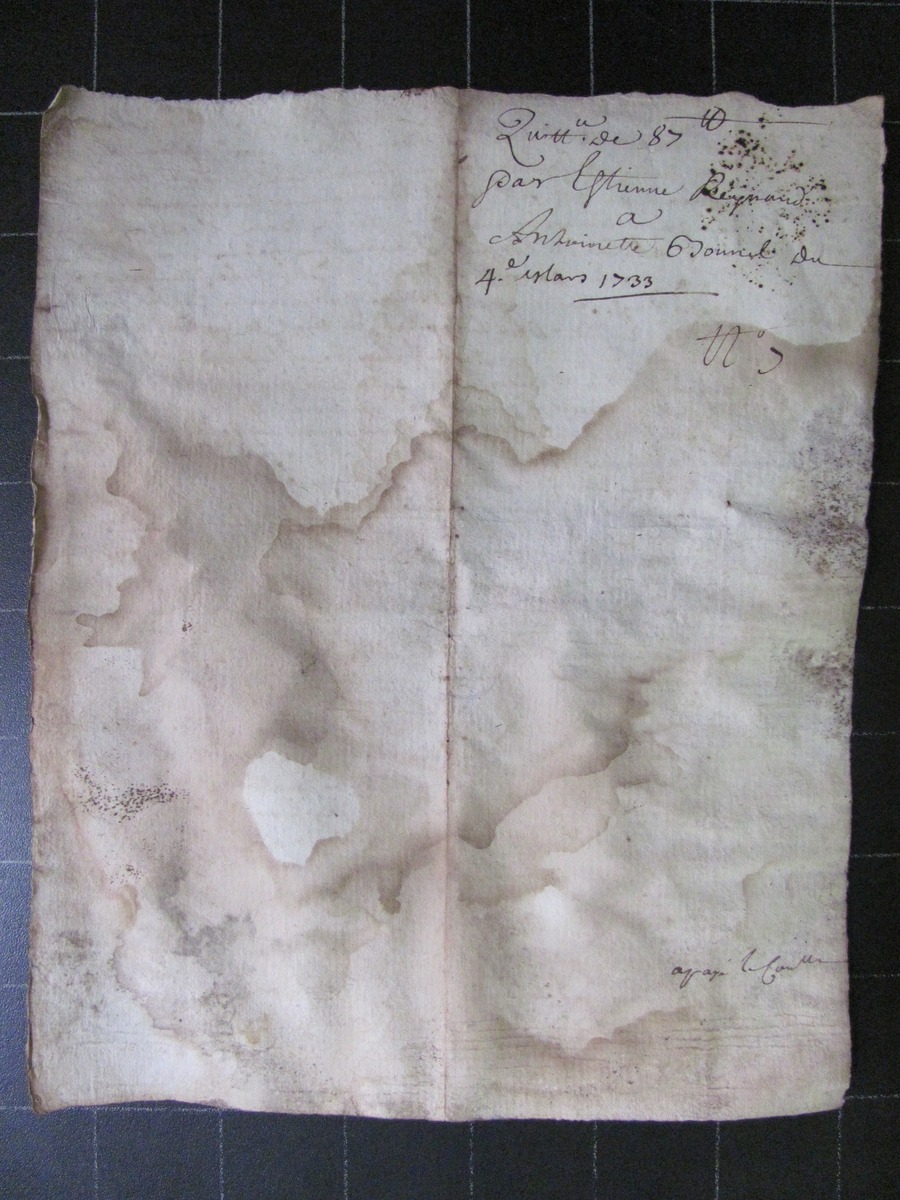 Quitt.ce de 87 ₶
par Estienne Reynaud
a
Antoinette du
4.e Mars 1733
N.o 7
a payé le